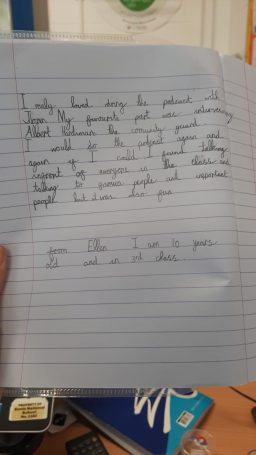 I really loved doing the podcast with
My favourite part was interviewing
Albert the comunity guard
I would do the podcast again and
again if I could I found talking
infront of everyone in the class and
talking to famous people and important
people but it was also fun
from Ellen I am 10 years
old and in 3rd class
PROPERTY OF
School